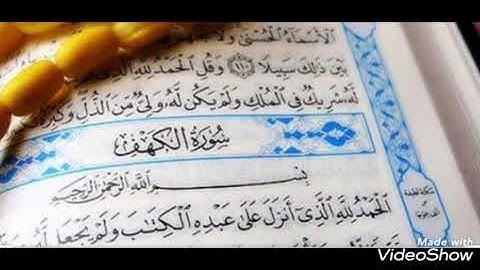 الْأَسْمَاءُ الْحُسْنَىٰ وَلَا
بَيْنَ ذَٰلِكَ سَبِيلًا ١١٠ وَقُلِ الْحَمْدُ لِلَّهِ الَّذِي
لَّهُ شَرِيكٌ فِي الْمُلْكِ وَلَمْ يَكُن لَّهُ وَلِيٌّ مِّنَ الذُّلِّ وَكَبِّرْهُ
سُورَةُ الْكَهْفِ
بِسْمِ اللَّهِ الرَّحْمَٰنِ الرَّحِيمِ
الْحَمْدُ لِلَّهِ الَّذِي أَنزَلَ عَلَىٰ عَبْدِهِ الْكِتَابَ وَلَمْ يَجْعَل لَّهُ
سكتة لطيفة
Made with
VideoShow